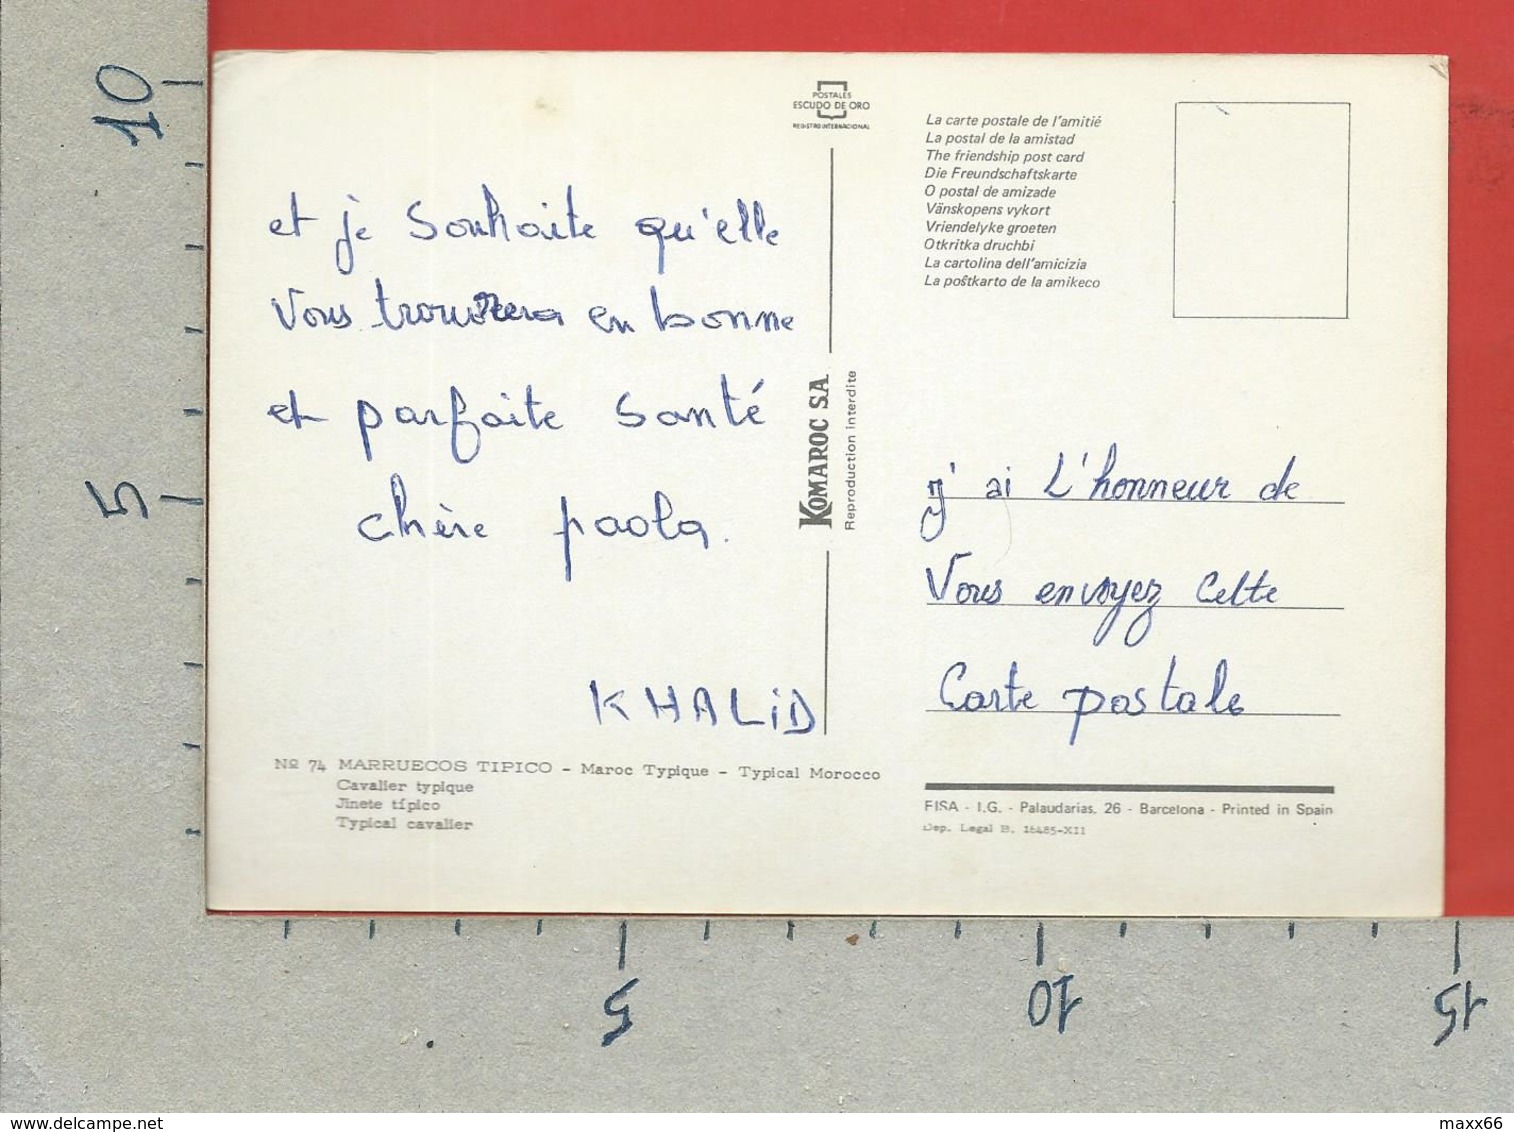 10
5
POSTALES
ESCUDO DE ORO
REGISTRO INTERNACIONAL
et je souhaite qu'elle
vous trouvera en bonne
et parfaite santé
chère paola.
KHALiD
Nº 74 MARRUECOS TIPICO - Maroc Typique - Typical Morocco
Cavalier typique
Jinete típico
Typical cavalier
KOMAROC S.A.
Reproduction interdite
La carte postale de l'amitié
La postal de la amistad
The friendship post card
Die Freundschaftskarte
O postal de amizade
Vänskopens vykort
Vriendelyke groeten
Otkritka druchbi
La cartolina dell'amicizia
La poŝtkarto de la amikeco
j'ai L'honneur de
Vous envoyez Cette
Carte postale
FISA - I.G. - Palaudarias, 26 - Barcelona - Printed in Spain
Dep. Legal B. 16485-XII
5
10
15
delcampe.net
maxx66